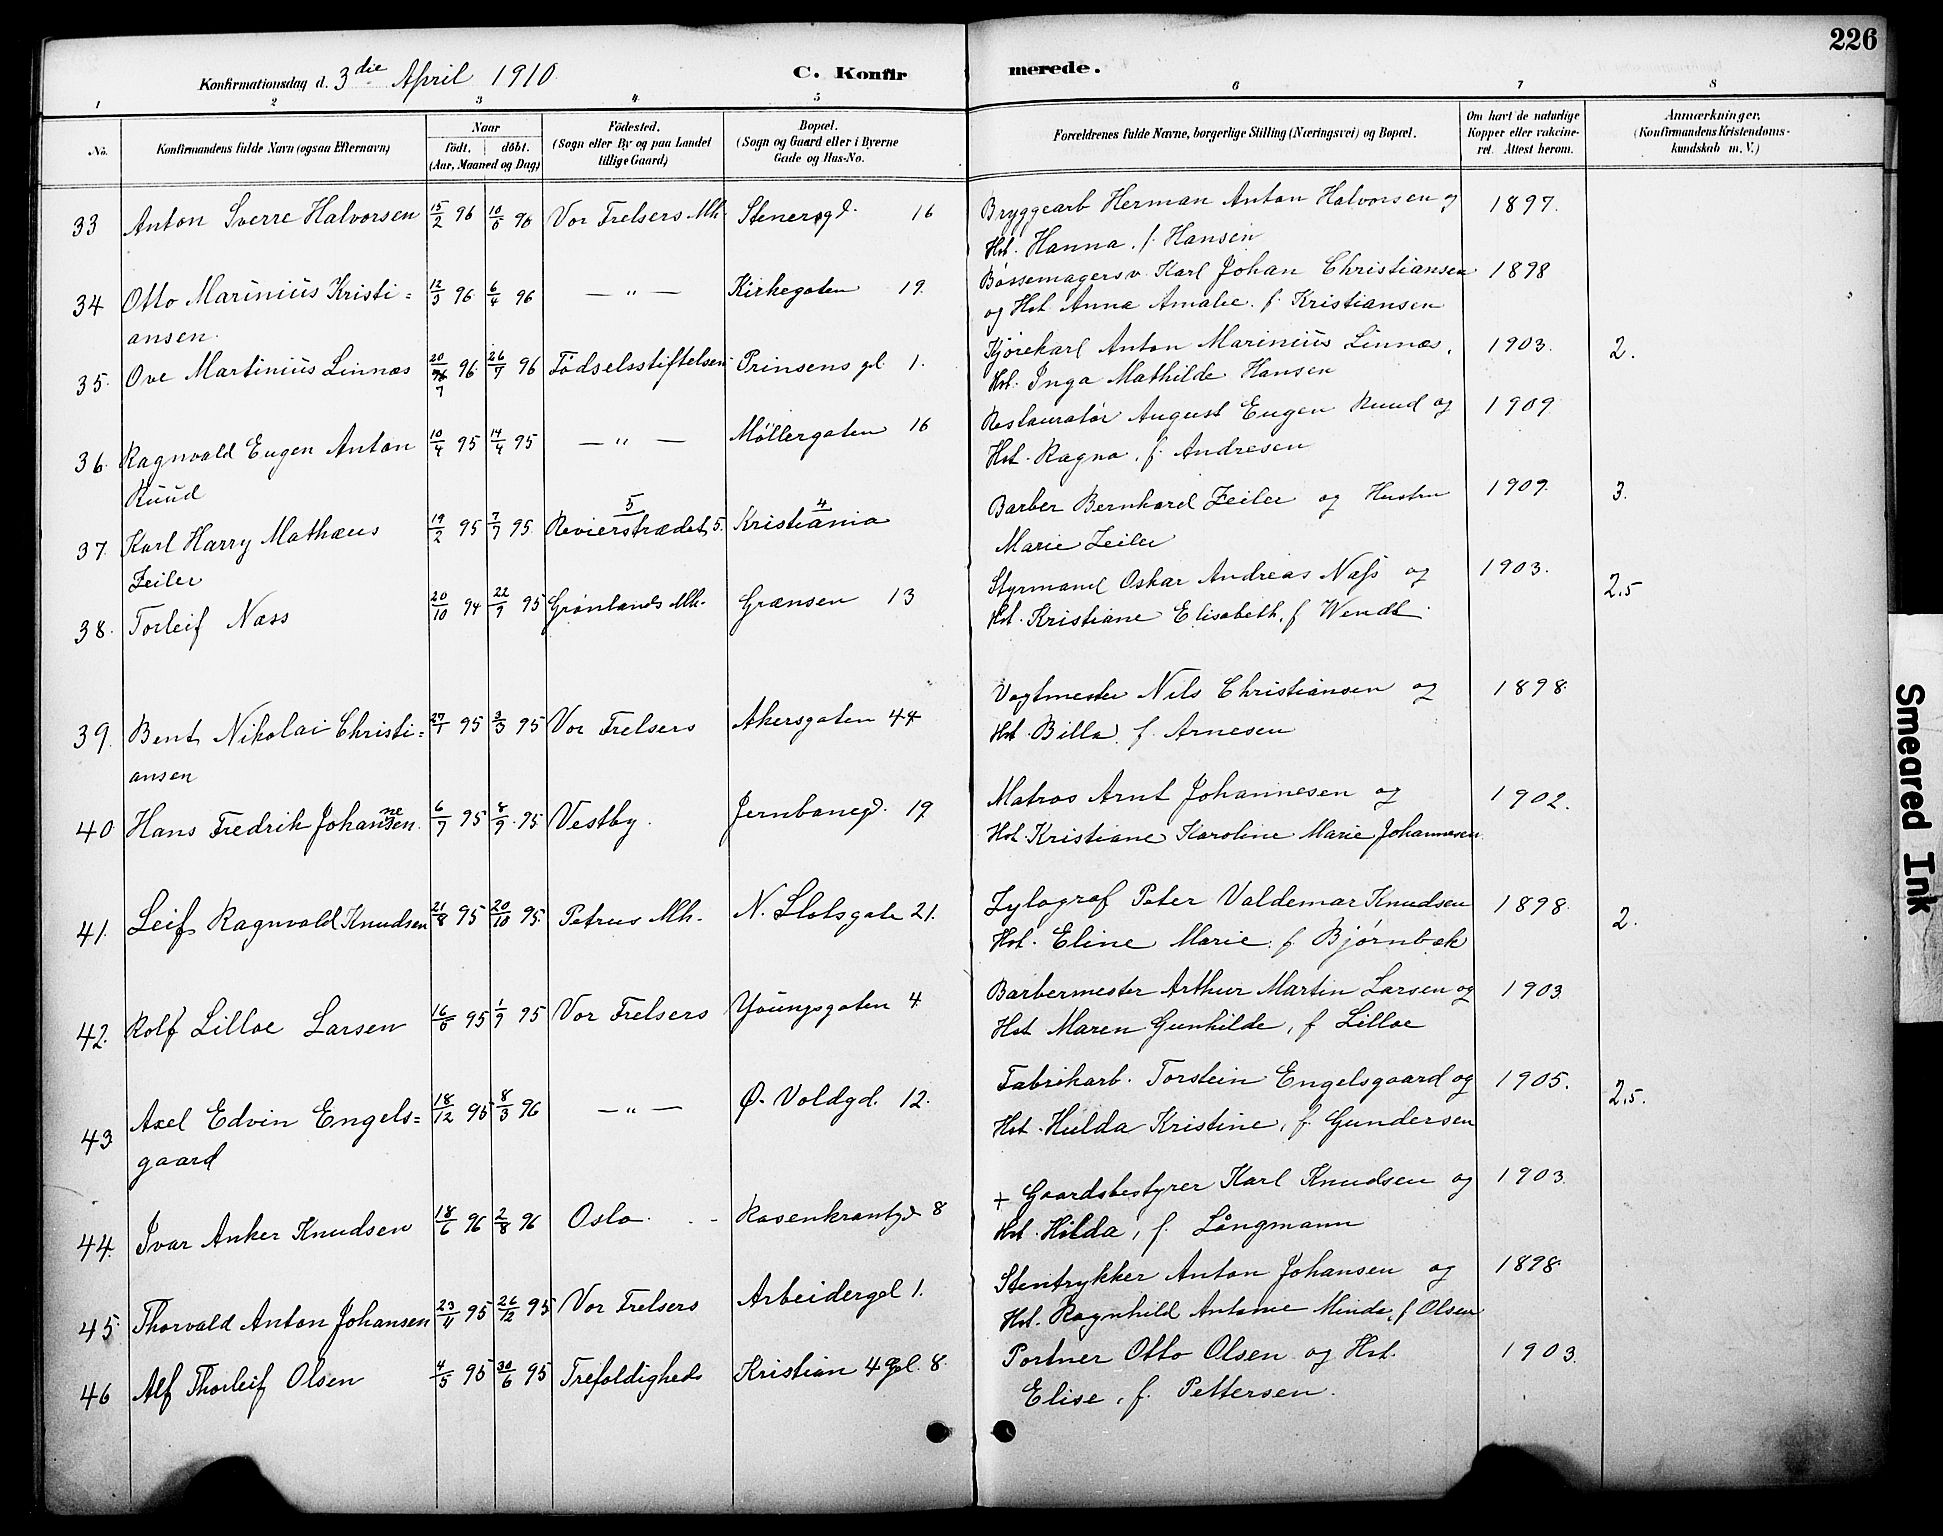 226
Konfirmationsdag d. 3die April 1910
C. Konfirmerede.
1 2 3 4 5 6 7 8
No.
Konfirmandens fulde Navn (ogsaa Efternavn)
Naar født. døbt. (Aar, Maaned og Dag)
Födested. (Sogn eller By og paa Landet tillige Gaard)
Bopæl. (Sogn og Gaard eller i Byerne Gade og Hus-No.
Forældrenes fulde Navne, borgerlige Stilling (Næringsvei) og Bopæl.
Om havt de naturlige Kopper eller vakcineret. Attest herom.
Anmærkninger. (Konfirmandens Kristendomskundskab m. V.)
33 Anton Sverre Halvorsen 15/2 96 10/5 96 Vor Frelsers Mh. Stenersgd. 16 Bryggearb Herman Anton Halvorsen og 1897.
Hst. Hanna, f. Hansen
34 Otto Marinius Kristi= 12/3 96 6/4 96 — " — Kirkegaten 19. Bøssemagersv. Karl Johan Christiansen 1898
ansen. og Hst. Anna Amalie. f. Kristiansen
35. Ove Martinius Linnæs 20/7 96 26/7 96 Fødselsstiftelsen Prinsens gd. 1. Kjørekarl Anton Marinius Linnæs, 1903. 2.
Hst. Inga Mathilde Hansen
36. Ragnvald Eugen Anton 10/4 95 14/4 95 — " — Møllergaten 16 Restauratør August Eugen Ruud og 1909
Ruud Hst. Ragna, f. Andresen
37. Karl Harry Mathæus 19/2 95 7/7 95 5 Revierstrædet 5. 4 Kristiania Barber Bernhard Zeiler og Hustru 1909. 3.
Zeiler Marie Zeiler
38. Torleif Næss 20/10 94 22/9 95 Grønlands Mh. Grænsen 13 Styrmand Oskar Andreas Næss og 1903. 2.5
Hst. Kristiane Elisabeth, f Wendt.
39. Bent Nikolai Christi= 27/1 95 3/3 95 Vor Frelsers Akersgaten 44 Vagtmester Nils Christiansen og 1898.
ansen Hst. Billa, f. Arnesen
40 Hans Fredrik Johannesen. 6/7 95 8/9 95 Vestby. Jernbanegd. 19 Matros Arnt Johannesen og 1902.
Hst. Kristiane Karoline Marie Johannesen
41. Leif Ragnvald Knudsen 21/8 95 20/10 95. Petrus Mh. N. Slotsgate 21. Xylograf Peter Valdemar Knudsen 1898. 2.
Hst. Eline Marie, f Bjørnbæk
42. Rolf Lilloe Larsen 16/5 95 1/9 95 Vor Frelsers Youngsgaten 4. Barbermester Arthur Martin Larsen og 1903
Hst Maren Gunhilde, f Lilloe
43 Axel Edvin Engels= 18/12 95 8/3 96 — " — Ø. Voldgd. 12. Fabrikarb. Torstein Engelsgaard og 1905. 2.5.
gaard Hst. Hulda Kristine, f. Gundersen
44. Ivar Anker Knudsen 18/6 96 2/8 96 Oslo. Rosenkrantzgd 8 + Gaardsbestyrer Karl Knudsen og 1903
Hst. Hilda, f. Långmann
45. Thorvald Anton Johansen 23/11 95 26/12 95 Vor Frelsers Arbeidergd 1. Stentrykker Anton Johansen og 1898.
Hst. Ragnhild Antonie Minda, f Olsen
46 Alf Thorleif Olsen 4/5 95 30/6 95 Trefoldigheds Kristian 4 gd. 8. Portner Otto Olsen og Hst. 1903.
Elise, f. Pettersen.
Smeared Ink